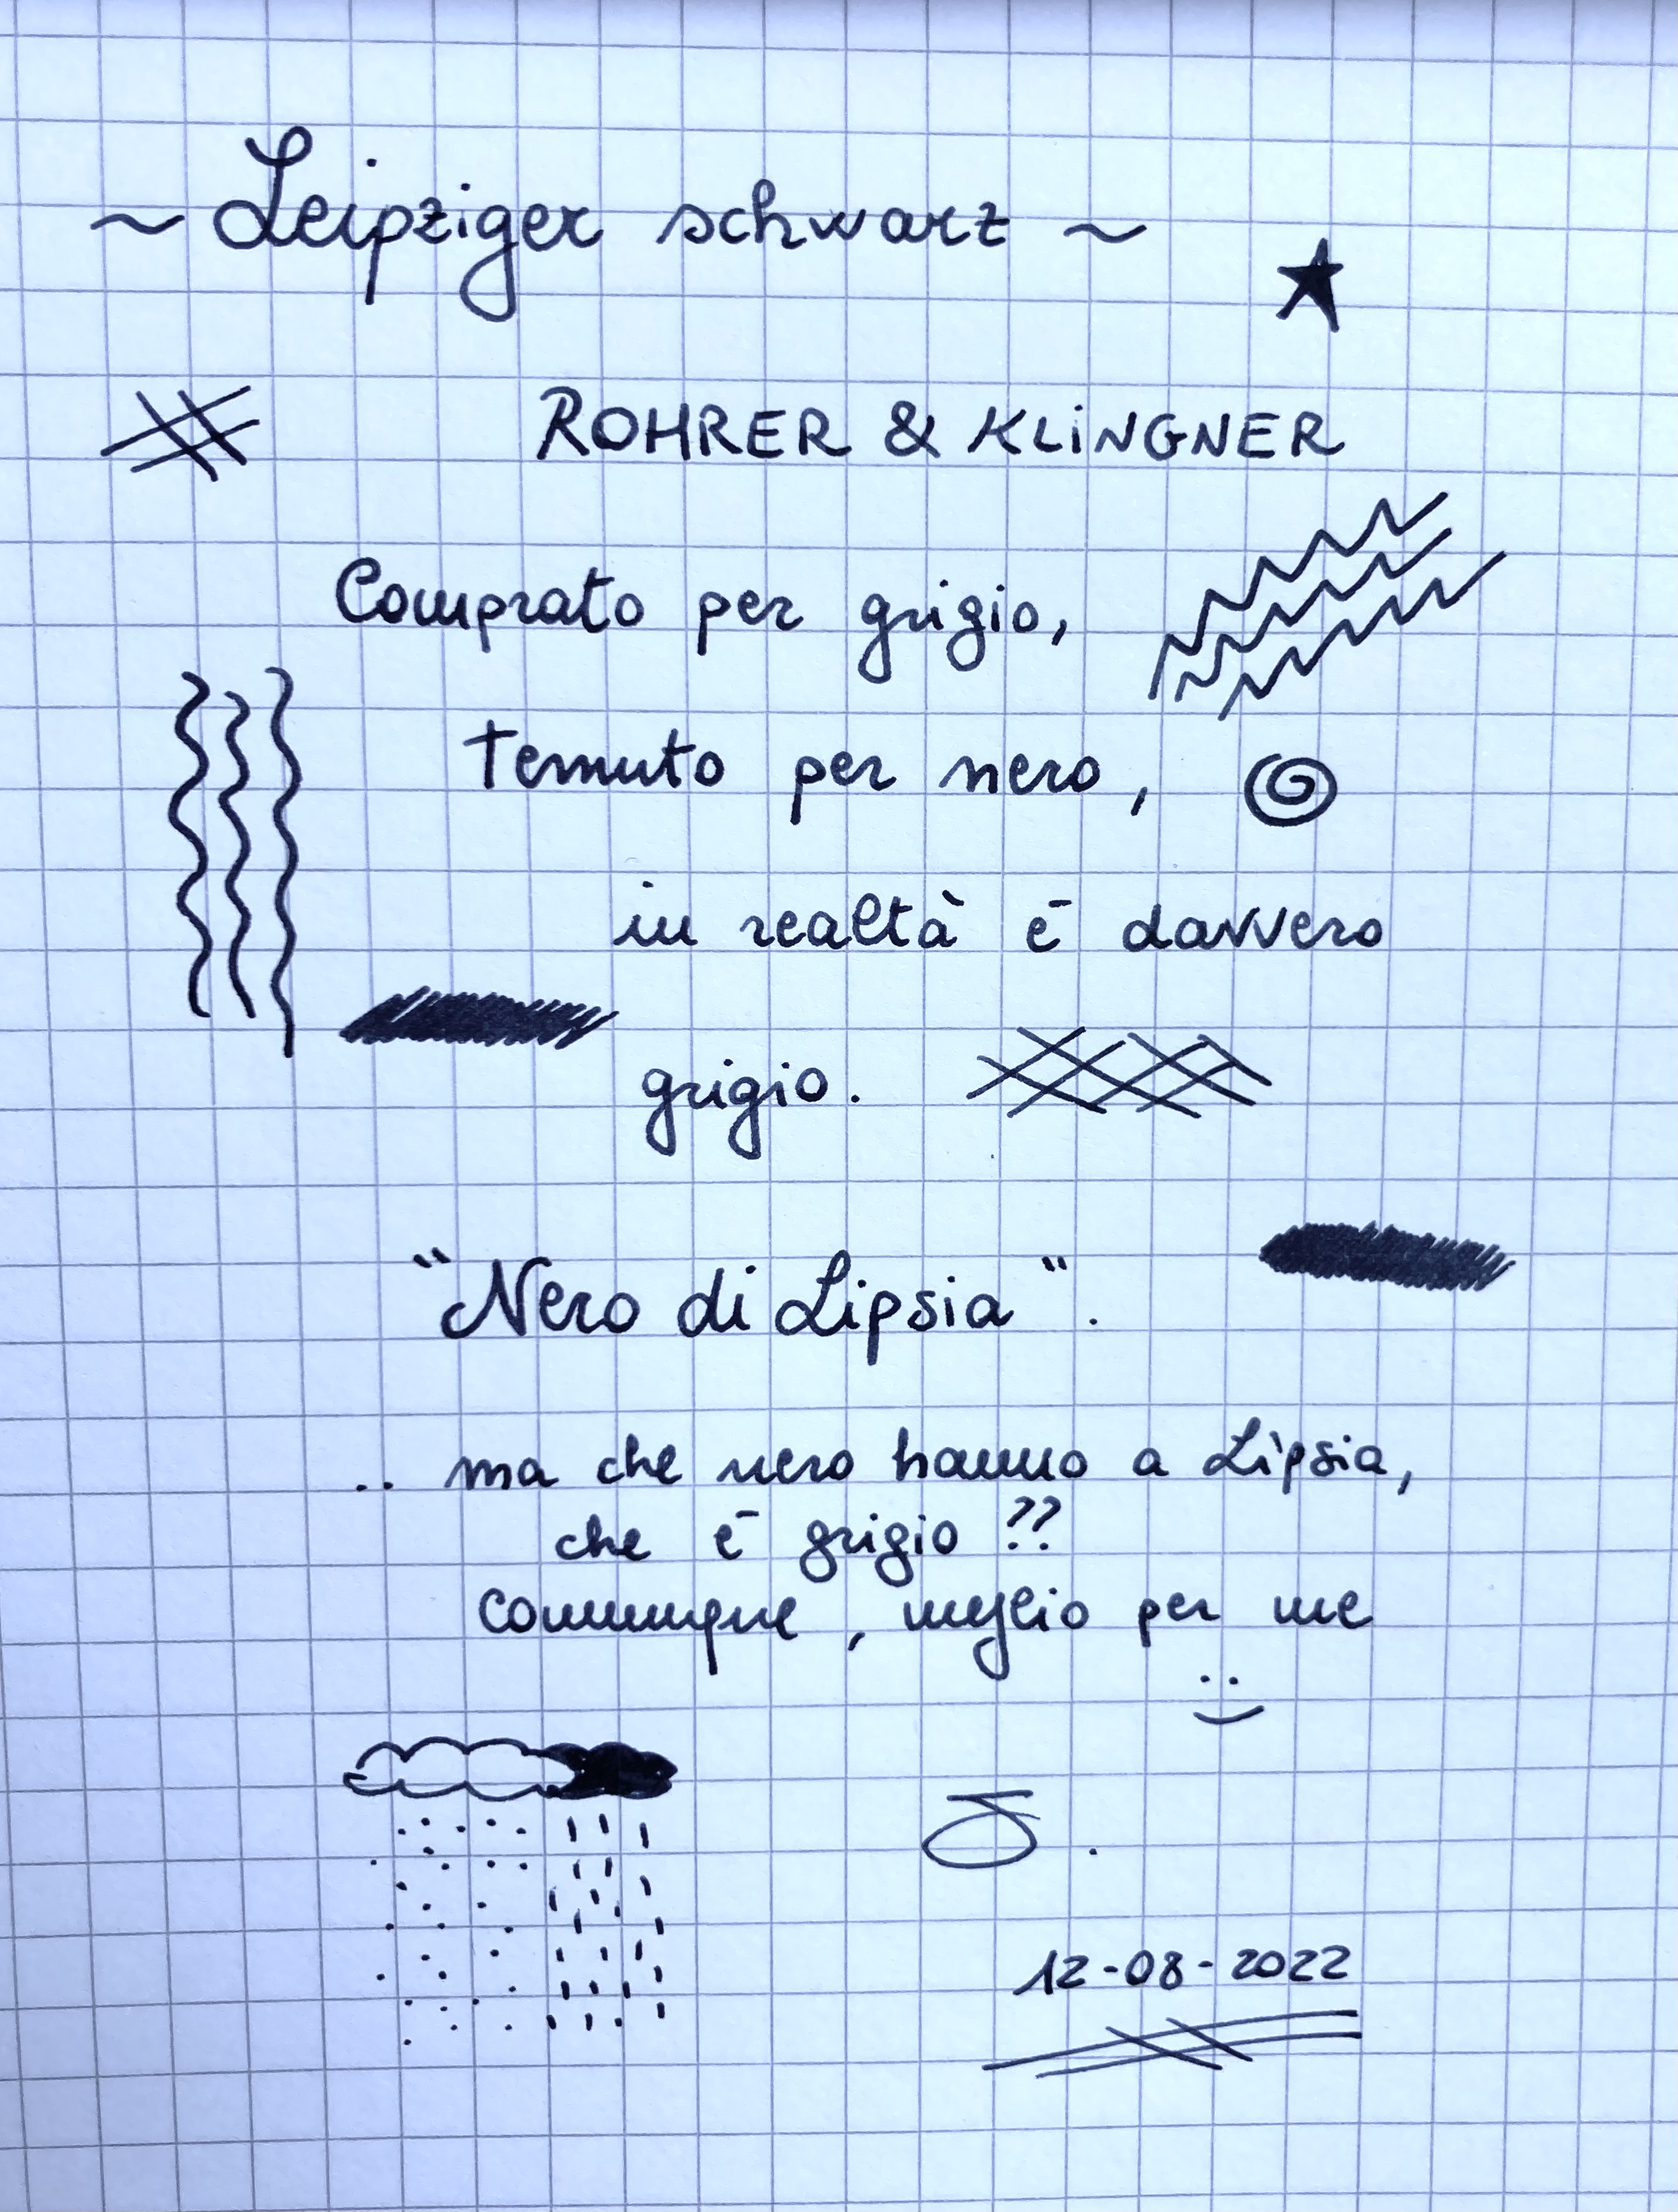 ~ Leipziger schwarz ~
ROHRER & KLiNGNER
Comprato per grigio,
temuto per nero,
in realtà è davvero
grigio.
"Nero di Lipsia".
.. ma che nero hanno a Lipsia,
che è grigio ??
comunque, meglio per me
¨⌣
12-08-2022